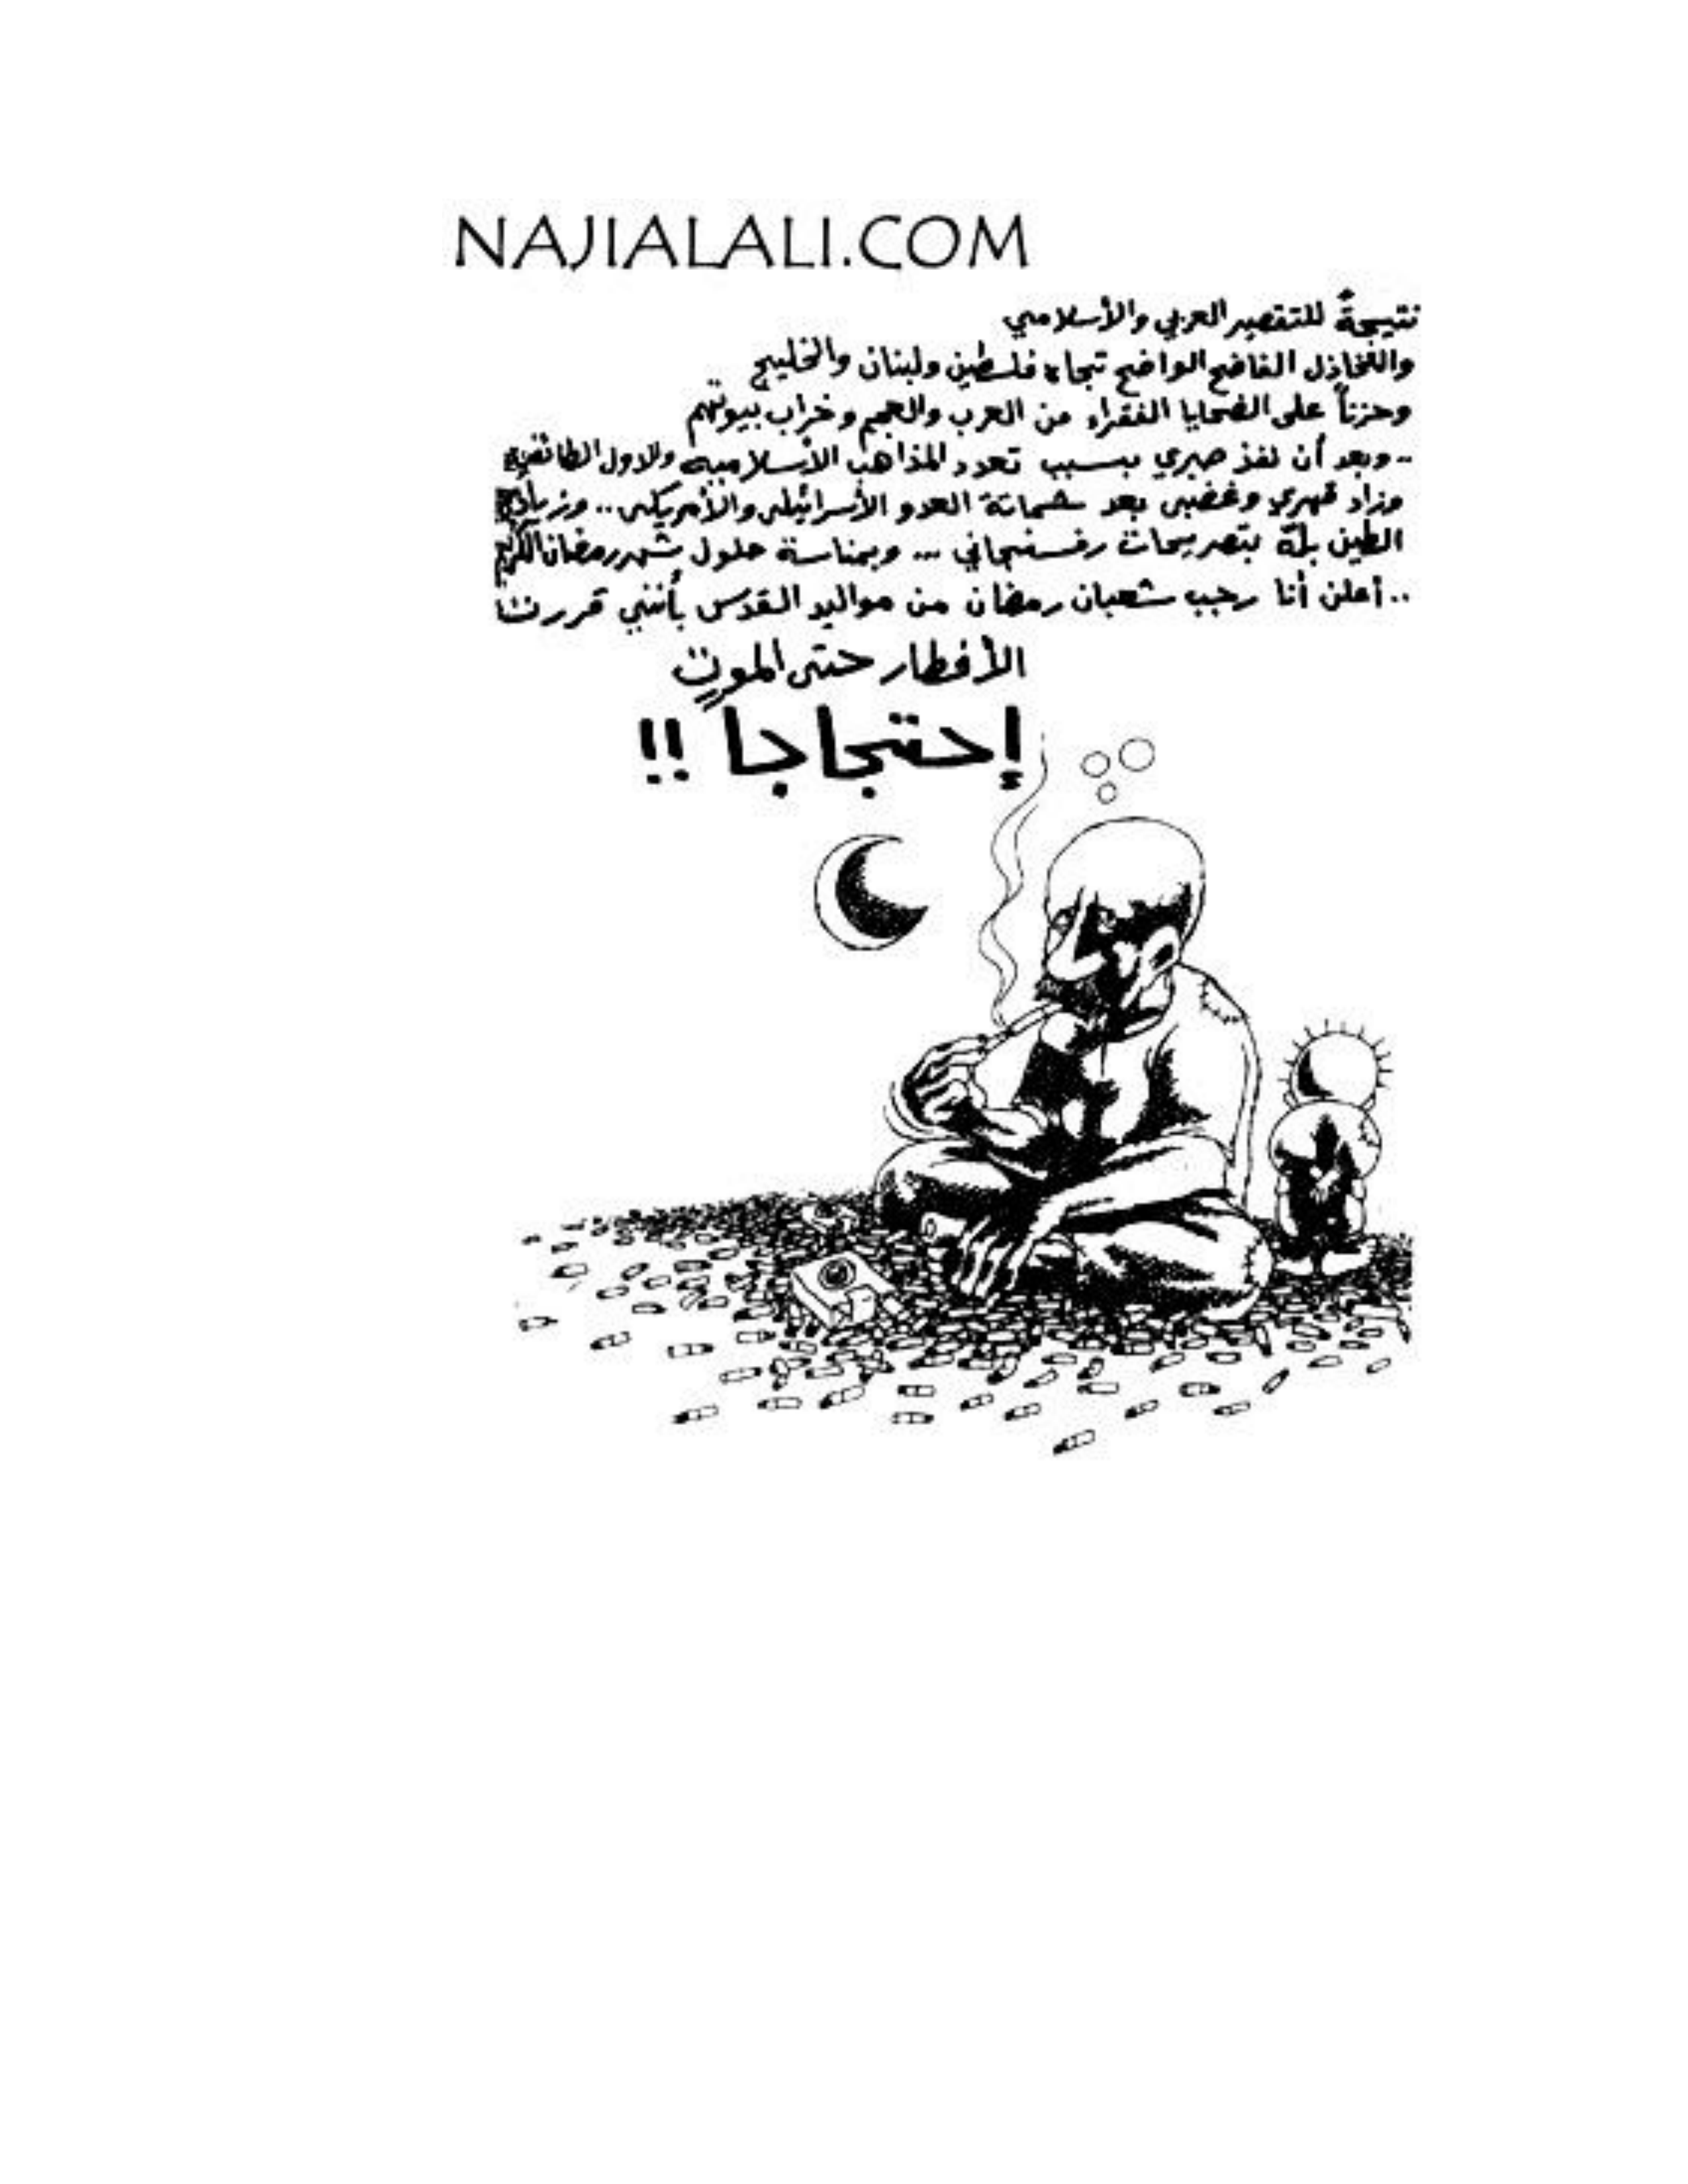 NAJIALALI.COM
نتيجةً للتقصير العربي والأسلامي
والتخاذل الفاضح الواضح تجاه فلسطين ولبنان والخليج
وحزناً على الضحايا الفقراء من العرب والعجم وخراب بيوتهم
.. وبعد أن نفذ صبري بسبب تعدد المذاهب الأسلامية والدول الطائفية
وزاد قهري وغضبي بعد شماتة العدو الأسرائيلي والأمريكي .. وزيادة
الطين بلّة بتصريحات رفسنجاني ... وبمناسة حلول شهر رمضان الكريم
.. أعلن أنا رجب شعبان رمضان من مواليد القدس بأنني قررت
الأفطار حتى الموت
إحتجاجاً !!